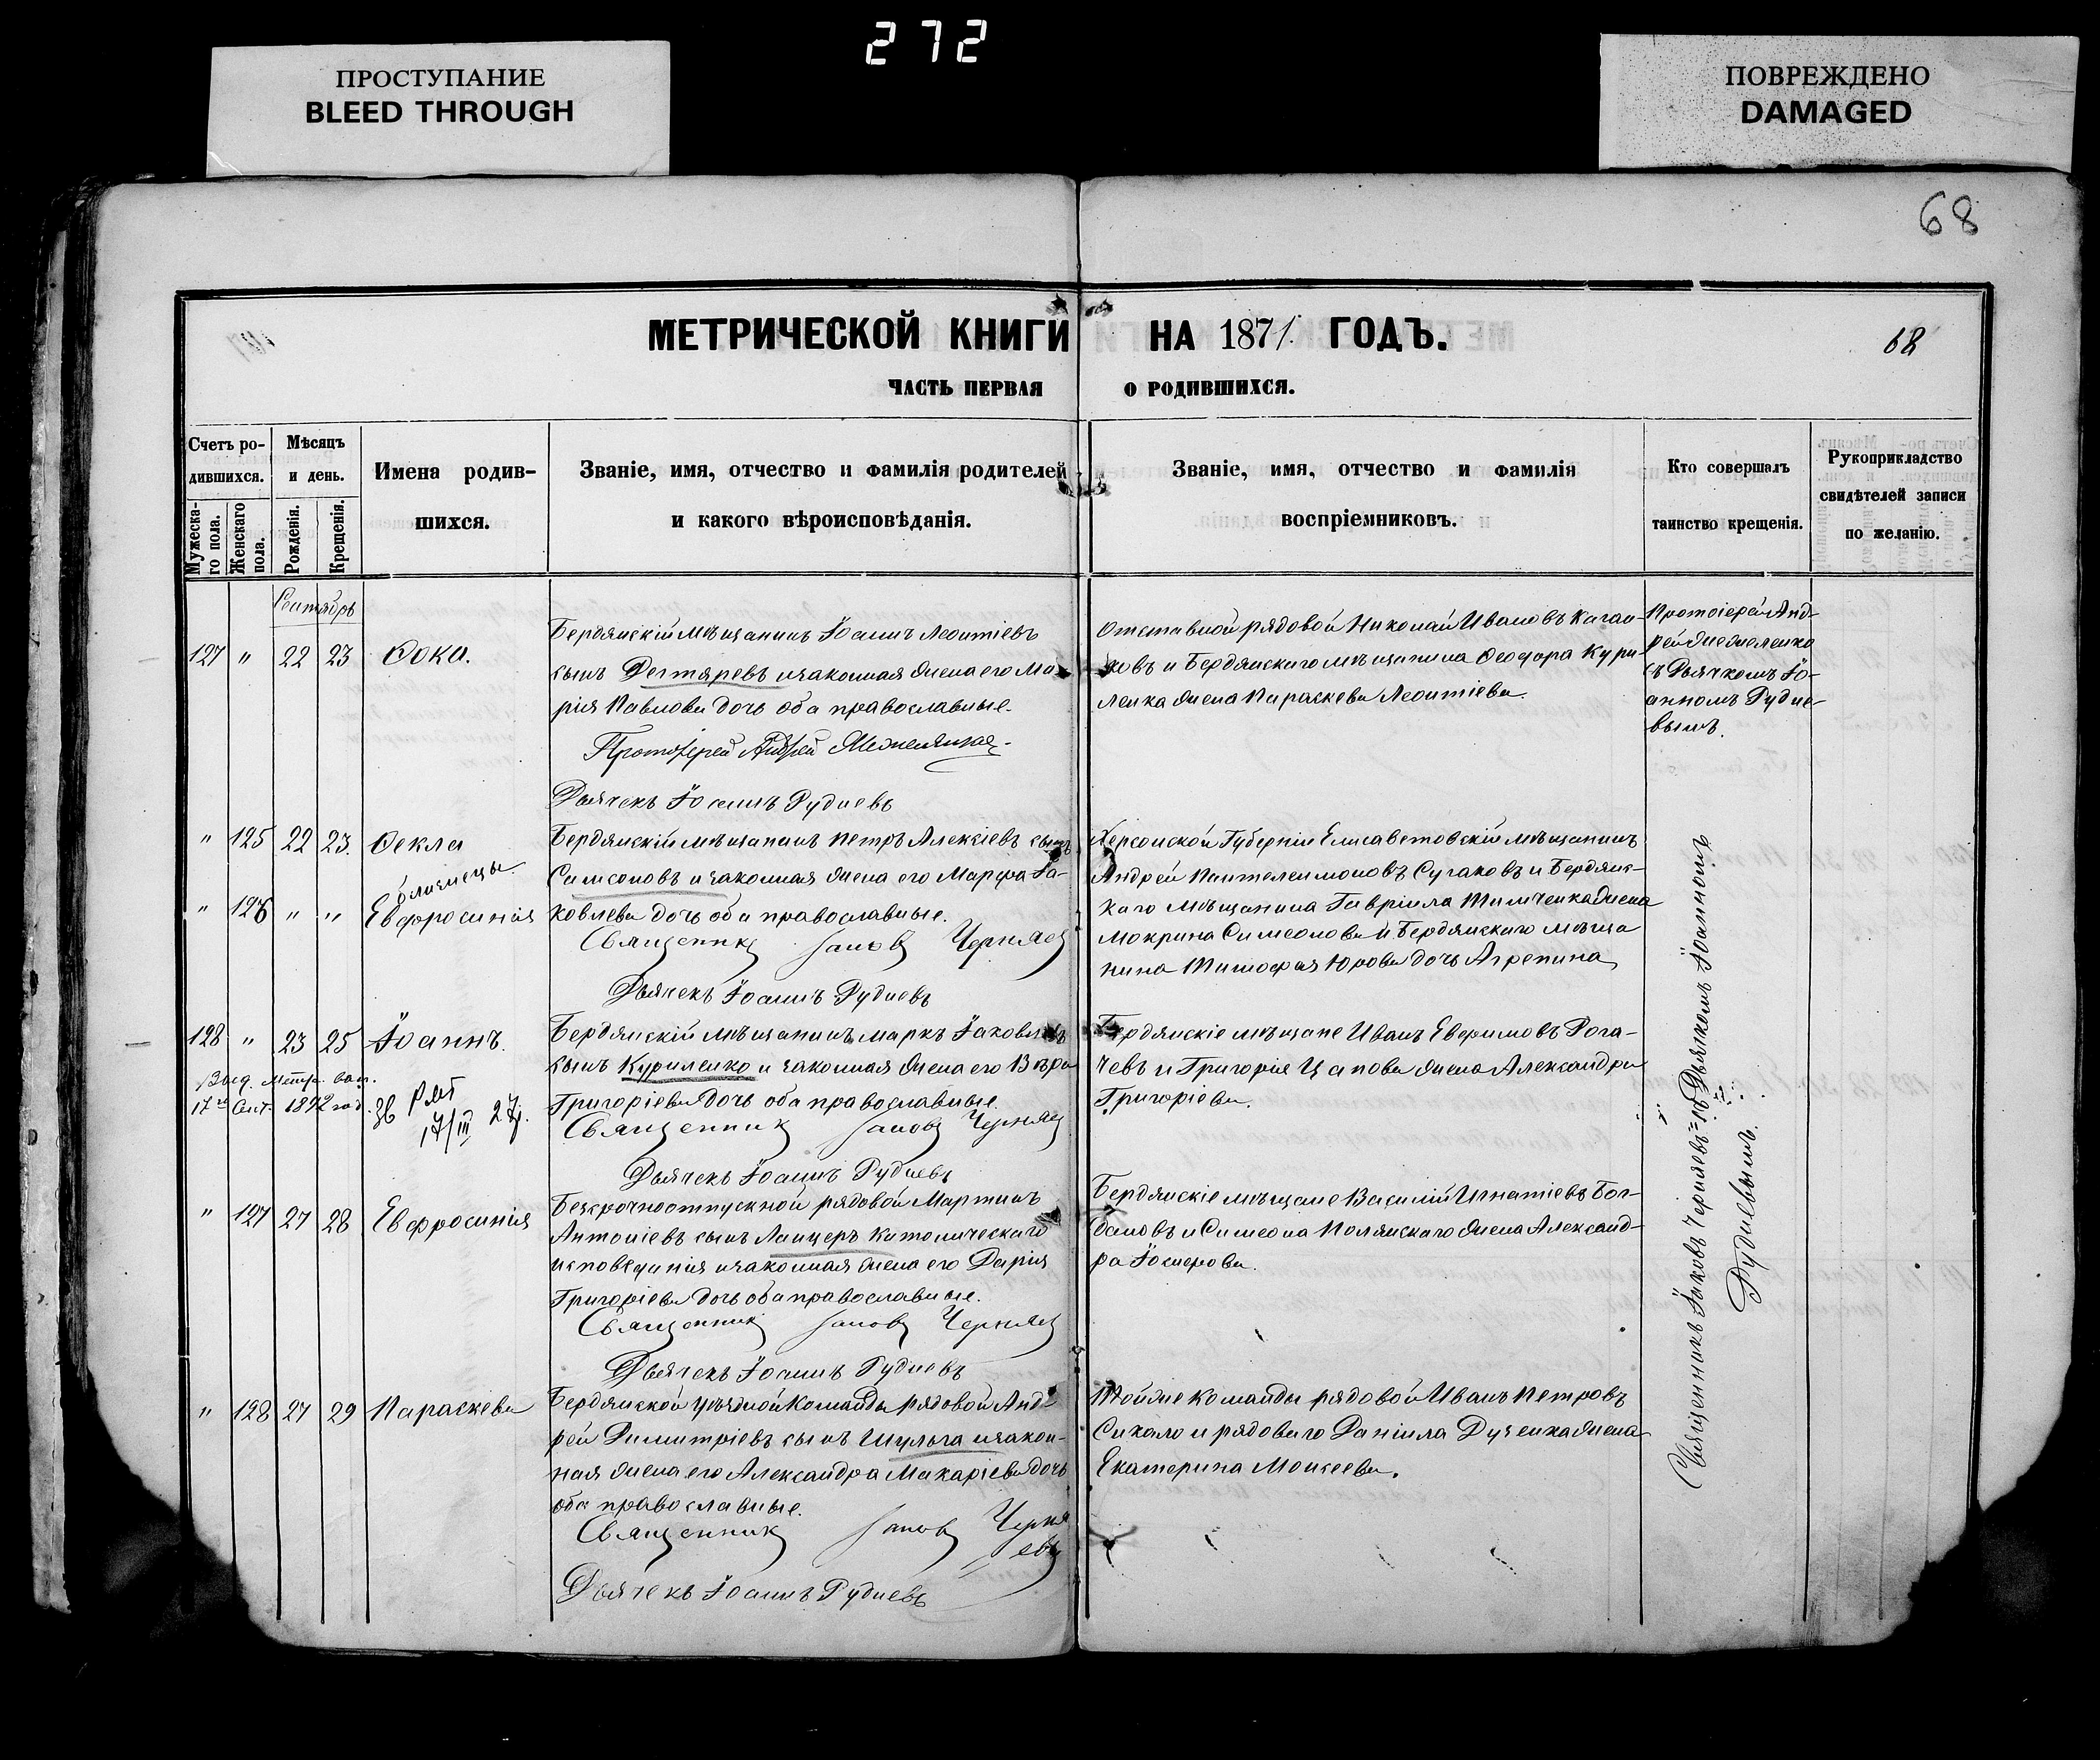 272
ПРОСТУПАНИЕ
BLEED THROUGH
ПОВРЕЖДЕНО
DAMAGED
68
МЕТРИЧЕСКОЙ КНИГИ НА 1871 ГОДЪ.
68
ЧАСТЬ ПЕРВАЯ О РОДИВШИХСЯ.
Счетъ ро-
дившихся.
Мужеска-
го пола.
Женскаго
пола.
Мѣсяцъ
и день.
Рожденія.
Крещенія.
Имена родив-
шихся.
Званіе, имя, отчество и фамилія родителей
и какого вѣроисповѣданія.
Званіе, имя, отчество и фамилія
воспріемниковъ.
Кто совершалъ
таинство крещенія.
Рукоприкладство
свидѣтелей записи
по желанію.
Сентябрь
127 " 22 23 Ѳока.
Бердянскій мѣщанинъ Іоаннъ Леонтіевъ
сынъ Дегтяревъ и законная жена его Ма-
рія Павлова дочь оба православные.
Протоіерей Андрей
Дьячекъ Іоаннъ Рудневъ
Отставной рядовой Николай Ивановъ Каган-
ковъ и Бердянскаго мѣщанина Ѳеодора Кури-
ленка жена Параскева Леонтіева.
Протоіерей Анд-
рей
съ Дьячкомъ Іо-
анномъ Рудне-
вымъ.
" 125 22 23. Ѳекла
близнецы.
" 126 " " Евфросинія
Бердянскій мѣщанинъ Петръ Алексіевъ сынъ
Самсоновъ и законная жена его Марфа Іа-
ковлева дочь оба православные.
Священникъ Іаковъ Черняев
Дьячекъ Іоаннъ Рудневъ
Херсонской Губерніи Елисаветовскій мѣщанинъ
Андрей Пантелеимоновъ Сугаковъ и Бердянс-
каго мѣщанина Гавріила Тимченка жена
Мокрина Симеонова и Бердянскаго мѣща
нина Тимофея Юрова дочь Агрепина
128 " 23 25 Іоаннъ.
Выд. Метр. вып.
17го Сент. 1892 год.
17/III 27г.
Бердянскій мѣщанинъ Маркъ Іаковлевъ
сынъ Куриленко и законная жена его Вѣра
Григоріева дочь оба православные.
Священникъ Іаковъ Черняев
Дьячекъ Іоаннъ Рудневъ
Бердянскіе мѣщане Иванъ Евфимовъ Рога-
чевъ и Григорія Цапова жена Александра
Григоріева.
" 127 27 28 Евфросинія
Безсрочноотпускной рядовой Мартинъ
Антоніевъ сынъ Ланцеръ Католическаго
исповѣданія и законная жена его Дарія
Григоріева дочь оба православные.
Священникъ Іаковъ Черняев
Дьячекъ Іоаннъ Рудневъ
Бердянскіе мѣщане Василій Игнатіевъ Бог-
дановъ и Симеона Полянскаго жена Александ-
ра Іосифова.
" 128 27 29 Параскева
Бердянской уѣздной Команды рядовой Анд-
рей Димитріевъ сынъ Шульга и закон-
ная жена его Александра Макаріева дочь
оба православные.
Священникъ Іаковъ Черня
евъ
Дьячекъ Іоаннъ Рудневъ
Тойже команды рядовой Иванъ Петровъ
Сикало и рядоваго Даніила Дуженка жена
Екатерина Моисеева.
Священникъ Іаковъ Черняевъ съ Дьячкомъ Іоанномъ
Рудневымъ.